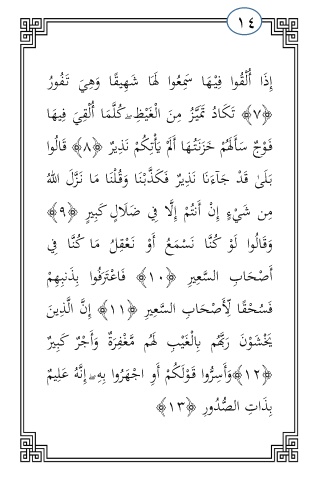 ١٤
إِذَا أُلْقُوا فِيْهَا سَمِعُوا لَهَا شَهِيقًا وَهِيَ تَفُورُ
﴿٧﴾ تَكَادُ تَمَيَّزُ مِنَ الْغَيْظِ ۖ كُلَّمَا أُلْقِيَ فِيهَا
فَوْجٌ سَأَلَهُمْ خَزَنَتُهَا أَلَمْ يَأْتِكُمْ نَذِيرٌ ﴿٨﴾ قَالُوا
بَلَىٰ قَدْ جَآءَنَا نَذِيرٌ فَكَذَّبْنَا وَقُلْنَا مَا نَزَّلَ اللهُ
مِن شَيْءٍ إِنْ أَنتُمْ إِلَّا فِي ضَلَالٍ كَبِيرٍ ﴿٩﴾
وَقَالُوا لَوْ كُنَّا نَسْمَعُ أَوْ نَعْقِلُ مَا كُنَّا فِي
أَصْحَابِ السَّعِيرِ ﴿١٠﴾ فَاعْتَرَفُوا بِذَنبِهِمْ
فَسُحْقًا لِّأَصْحَابِ السَّعِيرِ ﴿١١﴾ إِنَّ الَّذِينَ
يَخْشَوْنَ رَبَّهُم بِالْغَيْبِ لَهُم مَّغْفِرَةٌ وَأَجْرٌ كَبِيرٌ
﴿١٢﴾ وَأَسِرُّوا قَوْلَكُمْ أَوِ اجْهَرُوا بِهِ ۖ إِنَّهُ عَلِيمٌ
بِذَاتِ الصُّدُورِ ﴿١٣﴾